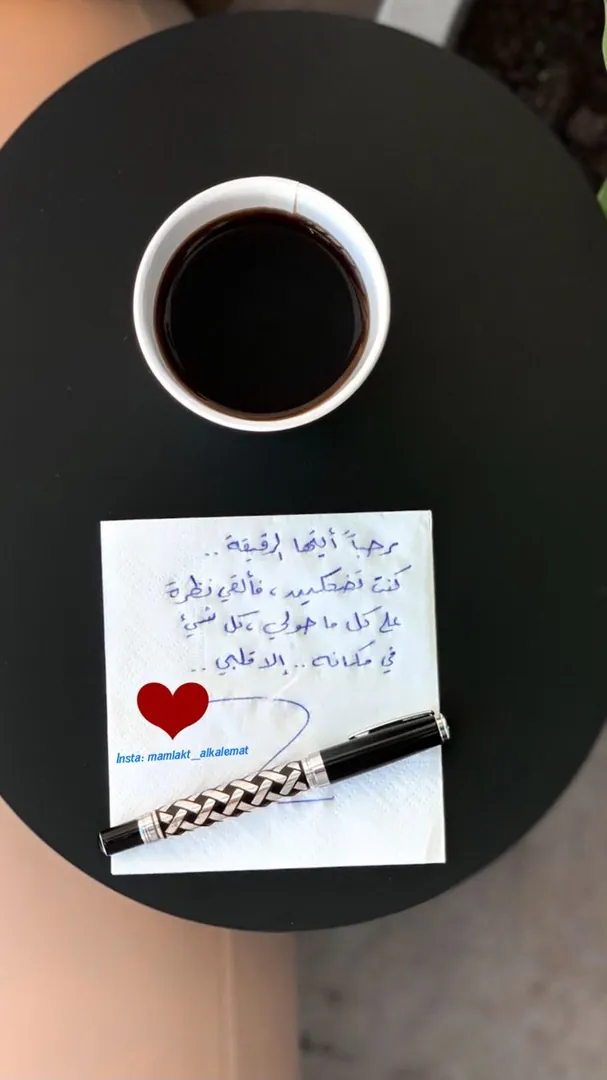 مرحباً أيتها الرقيقة ..
كنت تضحكين ، فألقي نظرة
على كل ما حولي ، كل شيئ
في مكانه .. إلا قلبي ..
Insta: mamlakt_alkalemat